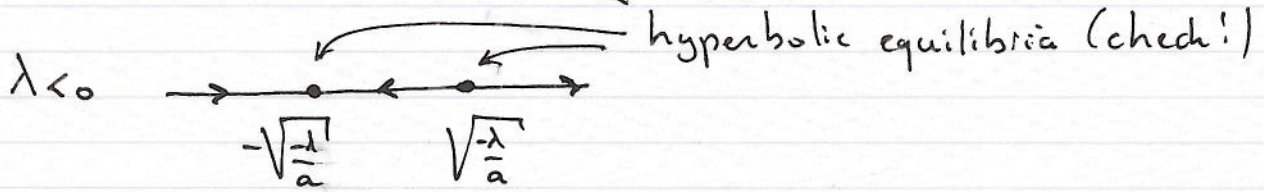 hyperbolic equilibria (check!)
λ<0
-√(-λ/a) √(-λ/a)